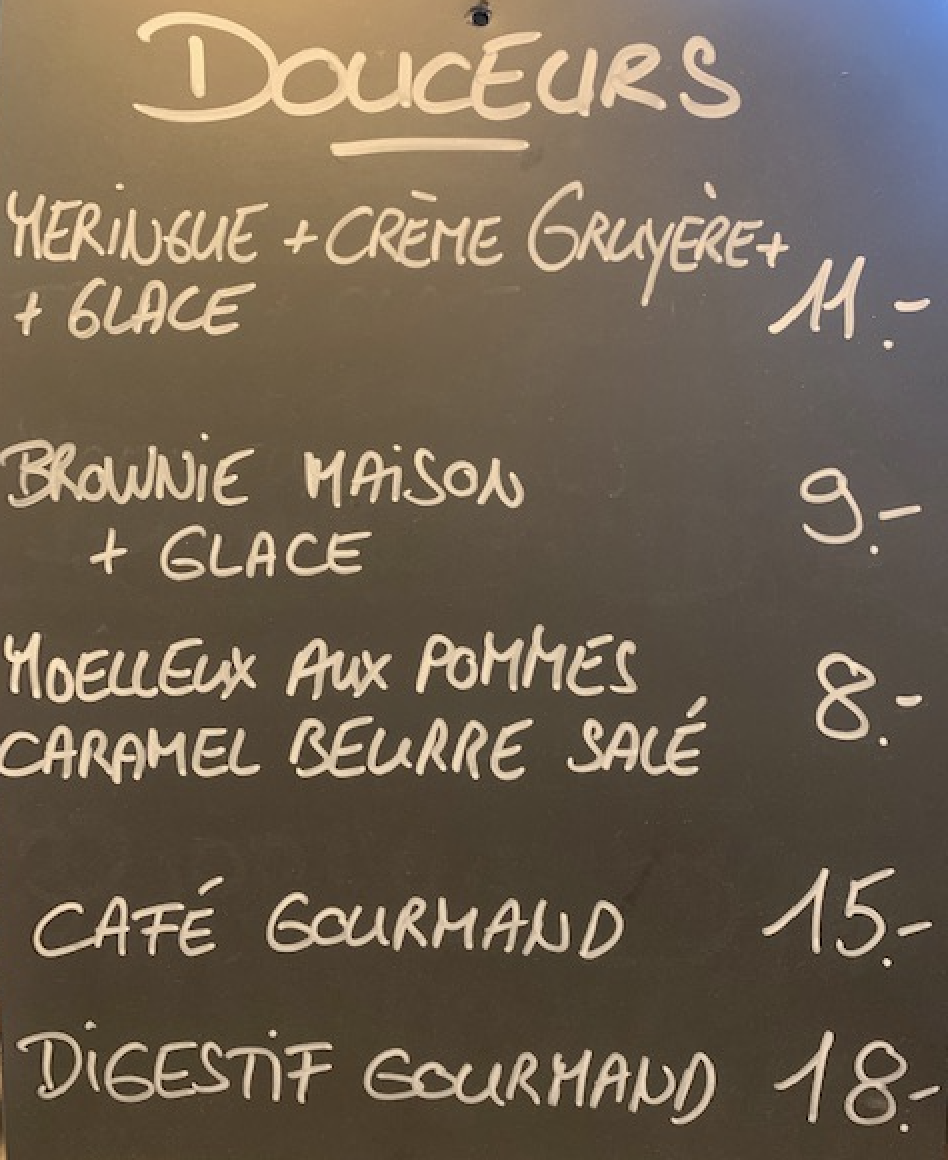 DOUCEURS
MERINGUE + CRÈME GRUYÈRE +
+ GLACE 11.-
BROWNIE MAISON 9.-
+ GLACE
MOELLEUX AUX POMMES 8.-
CARAMEL BEURRE SALÉ
CAFÉ GOURMAND 15.-
DIGESTIF GOURMAND 18.-